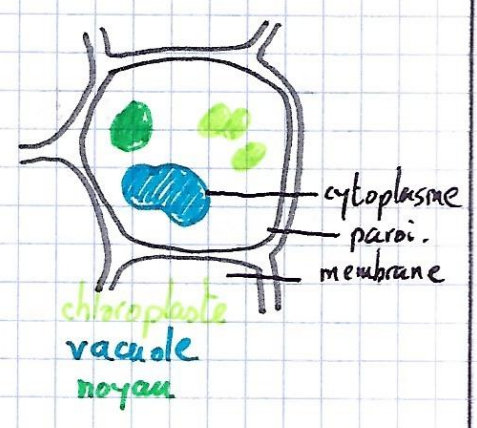 cytoplasme
paroi.
membrane
chloroplaste
vacuole
noyau